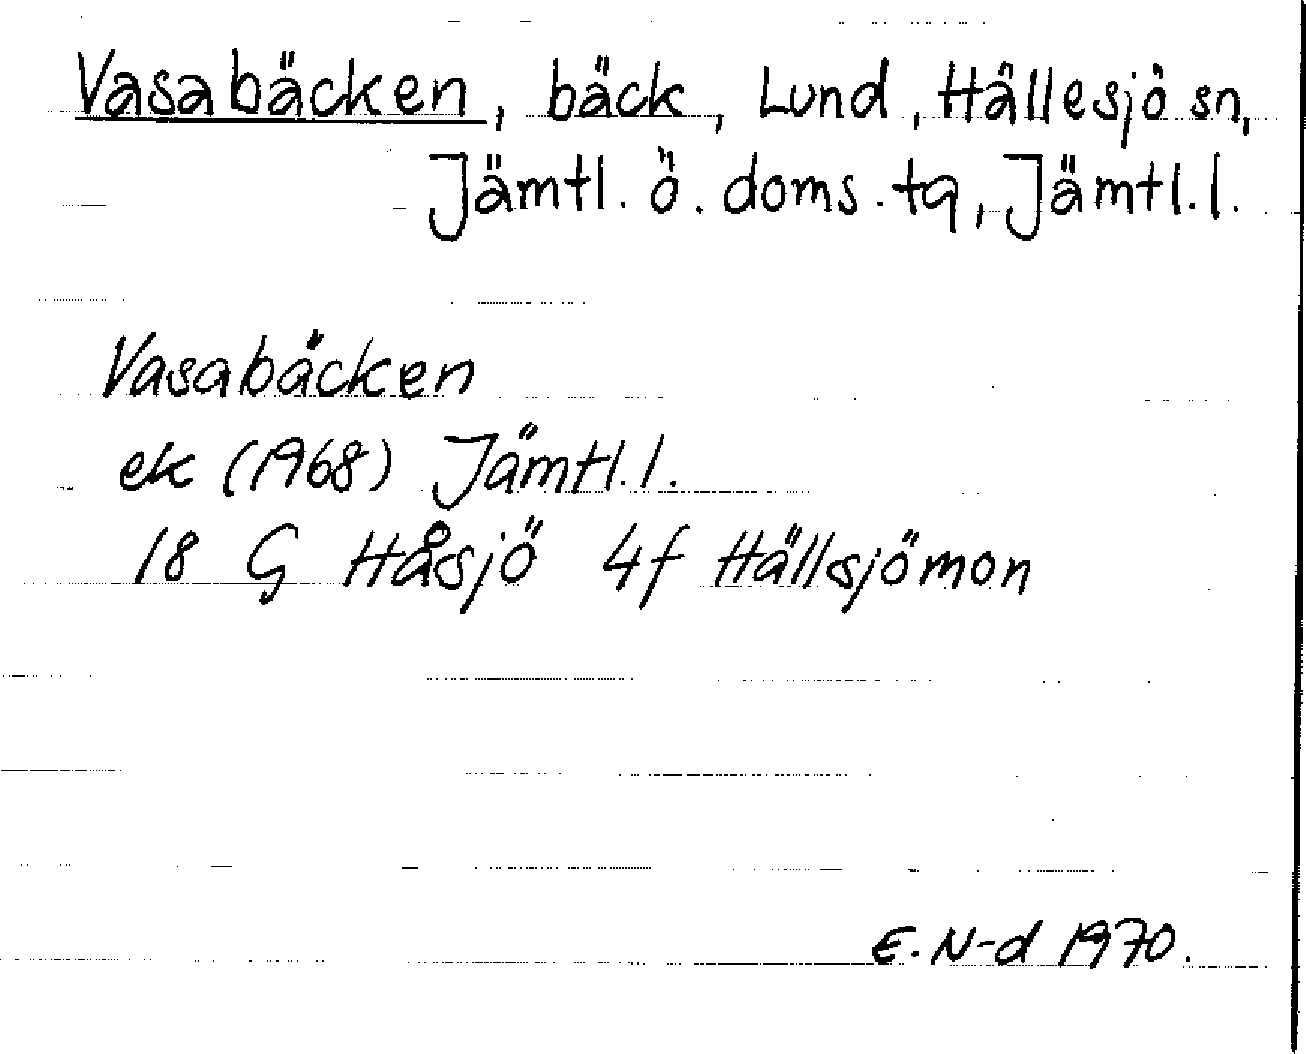 Vasabäcken, bäck, Lund, Hällesjö sn,
Jämtl. ö. doms. tg, Jämtl. l.
Vasabäcken
ek (1968) Jämtl. l.
18 G Håsjö 4f Hällsjömon
E. N-d 1970.